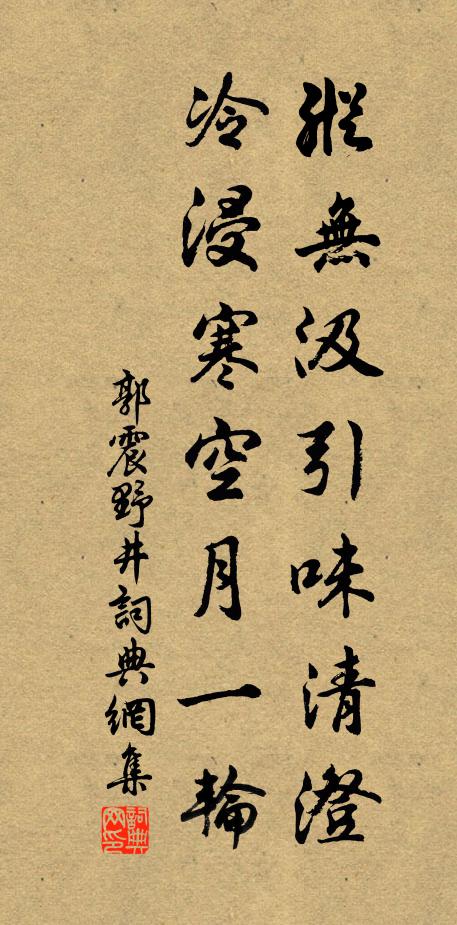 縱無汲引味清澄
冷浸寒空月一輪
郭震野井詞典網集
詞典網印